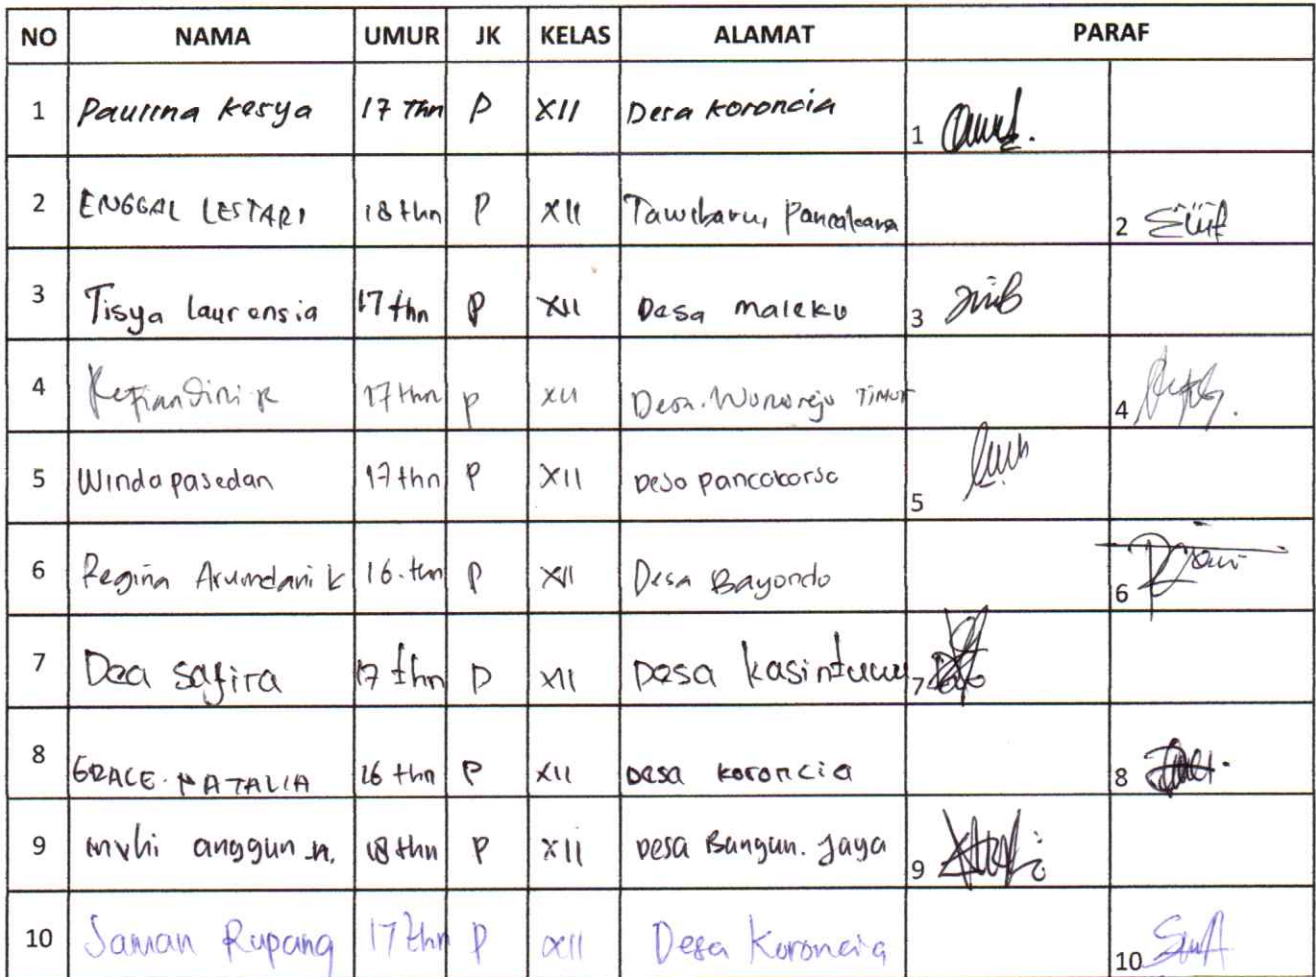 NO NAMA UMUR JK KELAS ALAMAT PARAF
1 Paulina Kesya 17 Thn P XII Desa Koroncia 1
2 ENGGAL LESTARI 18 thn P XII Tawibaru, Pancakarsa 2
3 Tisya laurensia 17 thn P XII Desa maleku 3
4 17 thn P XII Desa. Wonorejo TIMUR 4
5 Winda pasedan 17 thn P XII Desa pancakarsa 5
6 Regina Arumdani k 16. thn P XII Desa Bayondo 6
7 Dea safira 17 thn P XII Desa kasintuwu 7
8 GRACE. NATALIA 16 thn P XII Desa koroncia 8
9 anggun .n. 18 thn P XII Desa Bangun. Jaya 9
10 Saman Rupang 17 thn P XII Desa Koroncia 10